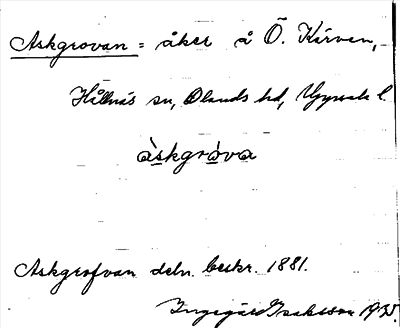 Askgrovan = åker å Ö. Kärven,
Hållnäs sn, Olands hd, Uppsala l.
àskgròva
Askgrofvan deln. beskr. 1881.
Ingegärd Isaksson 1935.